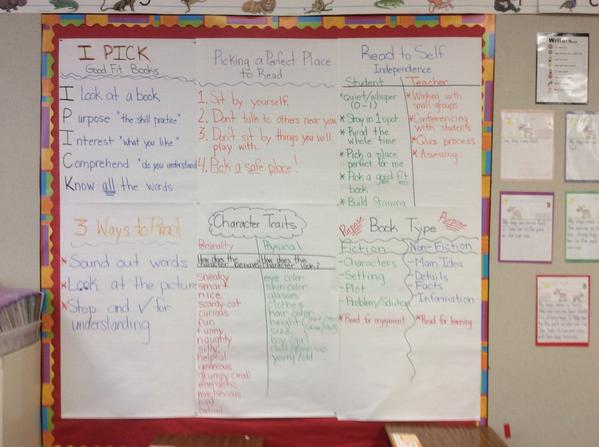 I PICK
Good Fit Books
I Look at a book
Purpose "the skill practice"
Interest "what you like"
Comprehend "do you understand
Know all the words
Picking a Perfect Place
to Read
1. Sit by yourself.
2. Don't talk to others near you.
3. Don't sit by things you will
play with.
4. Pick a safe place!
Read to Self
Independence
Student
Quiet/whisper
(0-1)
Stay in 1 spot
Read the
whole time
Pick a place
perfect for me
Pick a good fit
book
Build Stamina
Teacher
Working with
small groups
Conferencing
with students
Quiz process
Assessing
3 Ways to Read
Sound out words
Look at the picture
Stop and ✓ for
understanding
Character Traits
Personality
How does the
character behave?
sneaky
smart
nice
scardy-cat
curious
fun
funny
naughty
silly
helpful
generous
grumpy
energetic
mischievous
Physical
How does the
character look?
eye color
skin color
glasses
clothes
hair color
height
size
boy/girl
young/old
Book Type
Purpose
Fiction
-Characters
-Setting
-Plot
-Problem/Solution
Read for enjoyment
Purpose
Non-Fiction
-Main Idea
-Details
-Facts
-Information
Read for learning